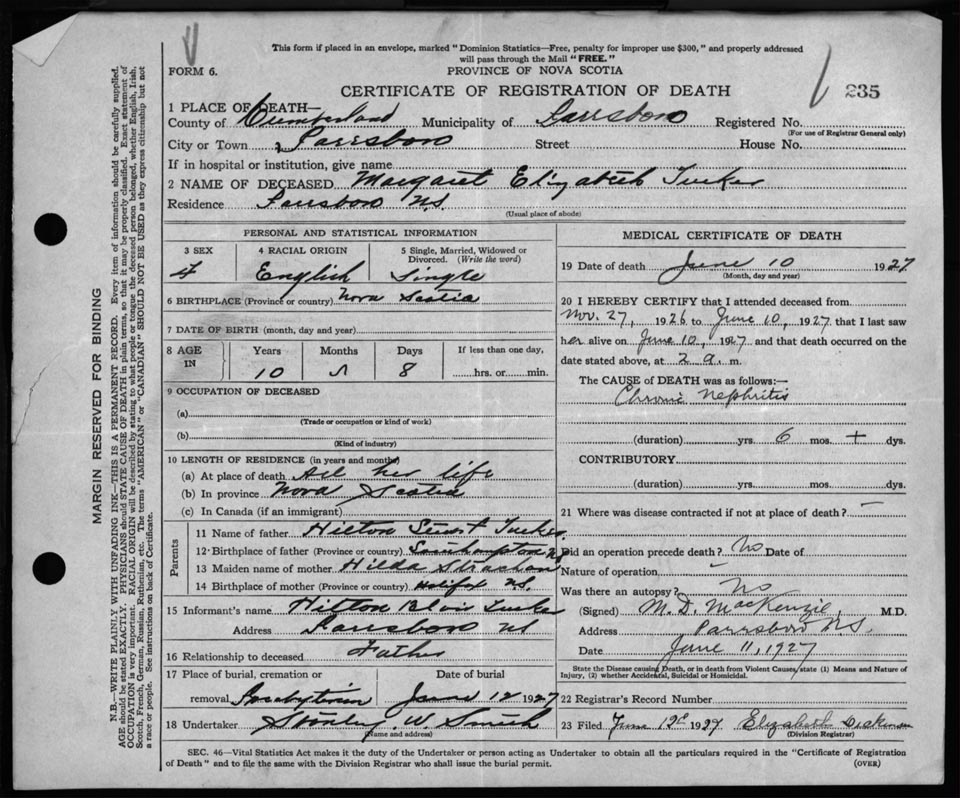 This form if placed in an envelope, marked "Dominion Statistics—Free, penalty for improper use $300," and properly addressed
will pass through the Mail "FREE."
FORM 6.
PROVINCE OF NOVA SCOTIA
CERTIFICATE OF REGISTRATION OF DEATH
235
1 PLACE OF DEATH—
County of Cumberland Municipality of Parrsboro Registered No.
(For use of Registrar General only)
City or Town Parrsboro Street House No.
If in hospital or institution, give name
2 NAME OF DECEASED Margaret Elizabeth Tucker
Residence Parrsboro N.S.
(Usual place of abode)
PERSONAL AND STATISTICAL INFORMATION
3 SEX 4 RACIAL ORIGIN 5 Single, Married, Widowed or
Divorced. (Write the word)
F English Single
6 BIRTHPLACE (Province or country) Nova Scotia
7 DATE OF BIRTH (month, day and year)
8 AGE IN Years Months Days If less than one day,
10 8 hrs. or min.
9 OCCUPATION OF DECEASED
(a)
(Trade or occupation or kind of work)
(b)
(Kind of industry)
10 LENGTH OF RESIDENCE (in years and months)
(a) At place of death All her life
(b) In province Nova Scotia
(c) In Canada (if an immigrant)
Parents
11 Name of father Hilton Tucker
12 Birthplace of father (Province or country) Southampton
13 Maiden name of mother Hilda Strachan
14 Birthplace of mother (Province or country) Halifax N.S.
15 Informant's name Hilton Tucker
Address Parrsboro NS
16 Relationship to deceased Father
17 Place of burial, cremation or Date of burial
removal Presbyterian June 12 1927
18 Undertaker Stanley W Smith
(Name and address)
MEDICAL CERTIFICATE OF DEATH
19 Date of death June 10 1927
(Month, day and year)
20 I HEREBY CERTIFY that I attended deceased from
Nov. 27, 1926 to June 10, 1927 that I last saw
her alive on June 10, 1927 and that death occurred on the
date stated above, at 2 a. m.
The CAUSE of DEATH was as follows:—
Chronic Nephritis
(duration) yrs. 6 mos. + dys.
CONTRIBUTORY
(duration) yrs. mos. dys.
21 Where was disease contracted if not at place of death? —
Did an operation precede death? No Date of
Nature of operation —
Was there an autopsy? No
(Signed) M. D. MacKenzie, M.D.
Address Parrsboro N.S.
Date June 11, 1927
State the Disease causing Death, or in death from Violent Causes, state (1) Means and Nature of
Injury, (2) whether Accidental, Suicidal or Homicidal.
22 Registrar's Record Number
23 Filed June 12 1927 Elizabeth Dickinson
(Division Registrar)
SEC. 46—Vital Statistics Act makes it the duty of the Undertaker or person acting as Undertaker to obtain all the particulars required in the "Certificate of Registration
of Death" and to file the same with the Division Registrar who shall issue the burial permit. (OVER)
MARGIN RESERVED FOR BINDING
N.B.—WRITE PLAINLY WITH UNFADING INK—THIS IS A PERMANENT RECORD. Every item of information should be carefully supplied.
AGE should be stated EXACTLY. PHYSICIANS should STATE CAUSE OF DEATH in plain terms, so that it may be properly classified. Exact statement of
OCCUPATION is very important. RACIAL ORIGIN will be described by stating to what people or tongue the deceased person belonged, whether English, Irish,
Scotch, French, German, Russian, Ruthenian, etc. The terms "AMERICAN" or "CANADIAN" SHOULD NOT BE USED as they express citizenship but not
a race or people. See instructions on back of Certificate.